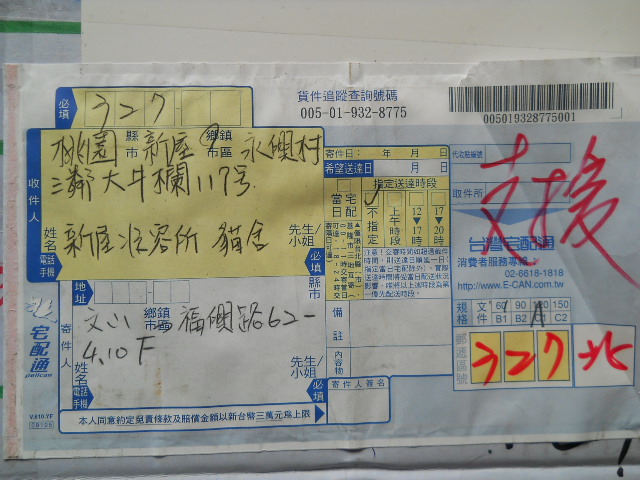 貨件追蹤查詢號碼
005-01-932-8775
005019328775001
必填
327
收件人
縣市
鄉鎮市區
桃園 新屋 永興村
三鄰大牛欄117号
新屋收容所 貓舍
姓名
電話
手機
先生/小姐
必填
寄件日: 年 月 日
希望送達日 月 日
指定送達時段
當日宅配
不指定
上午時段
12 17時
17 20時
代收貨款編號
取件所
支援
台灣宅配通
消費者服務專線:
02-6618-1818
http://www.E-CAN.com.tw
規格
文件
60 90 120 150
B1 B2 C2
郵遞區號
327 北
宅配通
Pelican
寄件人
地址
縣市
鄉鎮市區
福興路62-
4.10F
姓名
電話
手機
先生/小姐
必填
備註
內容物
寄件人簽名
本人同意約定免責條款及賠償金額以新台幣三萬元為上限
V.610.YF